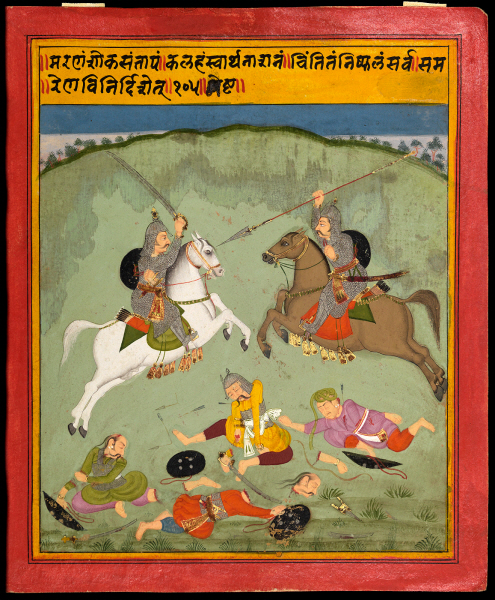 ॥मरणंशोकसंतापं॥कलहंस्वार्थनाशनं॥चिंतितंनिष्फलंसर्वं॥सम
रेणविनिर्दिशेत्॥१०५॥